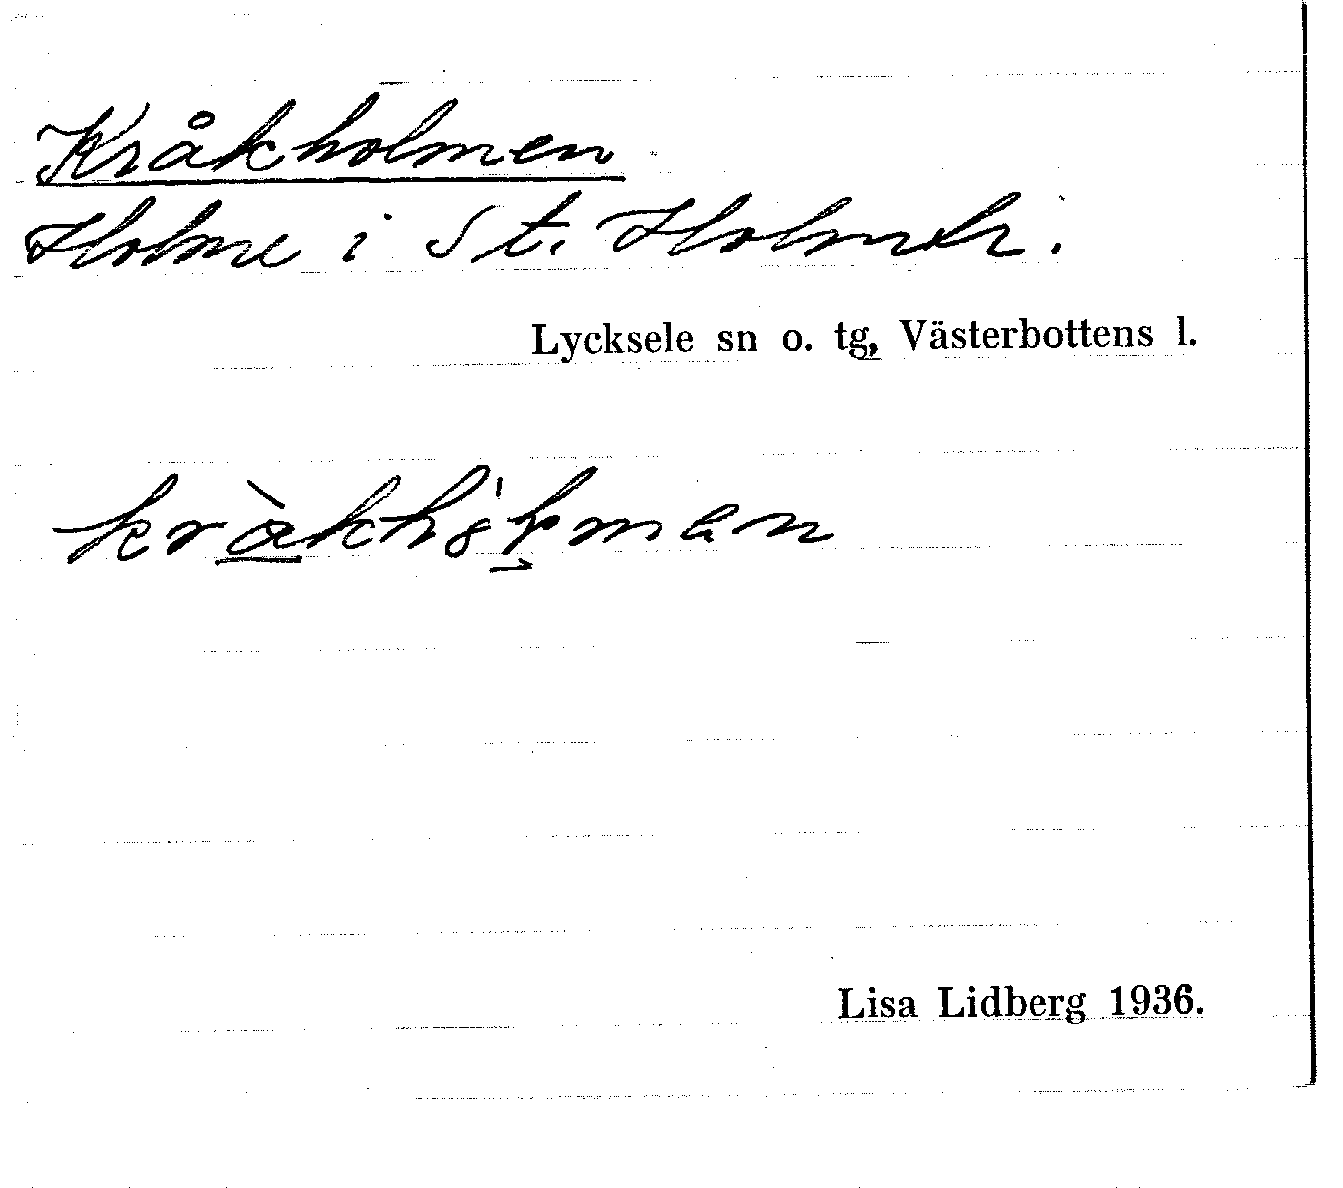 Kråkholmen
Holme i St. Holmtr.
Lycksele sn o. tg, Västerbottens l.
Lisa Lidberg 1936.